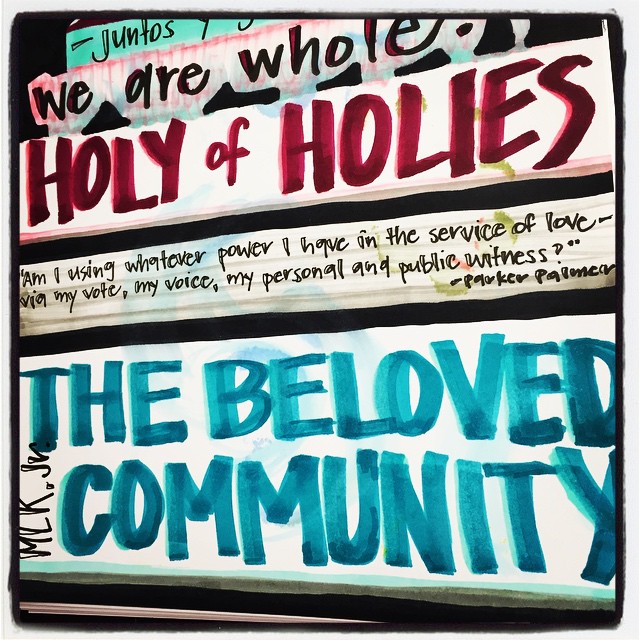 -juntos y
we are whole.
HOLY of HOLIES
"Am I using whatever power I have in the service of love-
via my vote, my voice, my personal and public witness?"
-Parker Palmer
THE BELOVED
COMMUNITY
MLK, Jr.